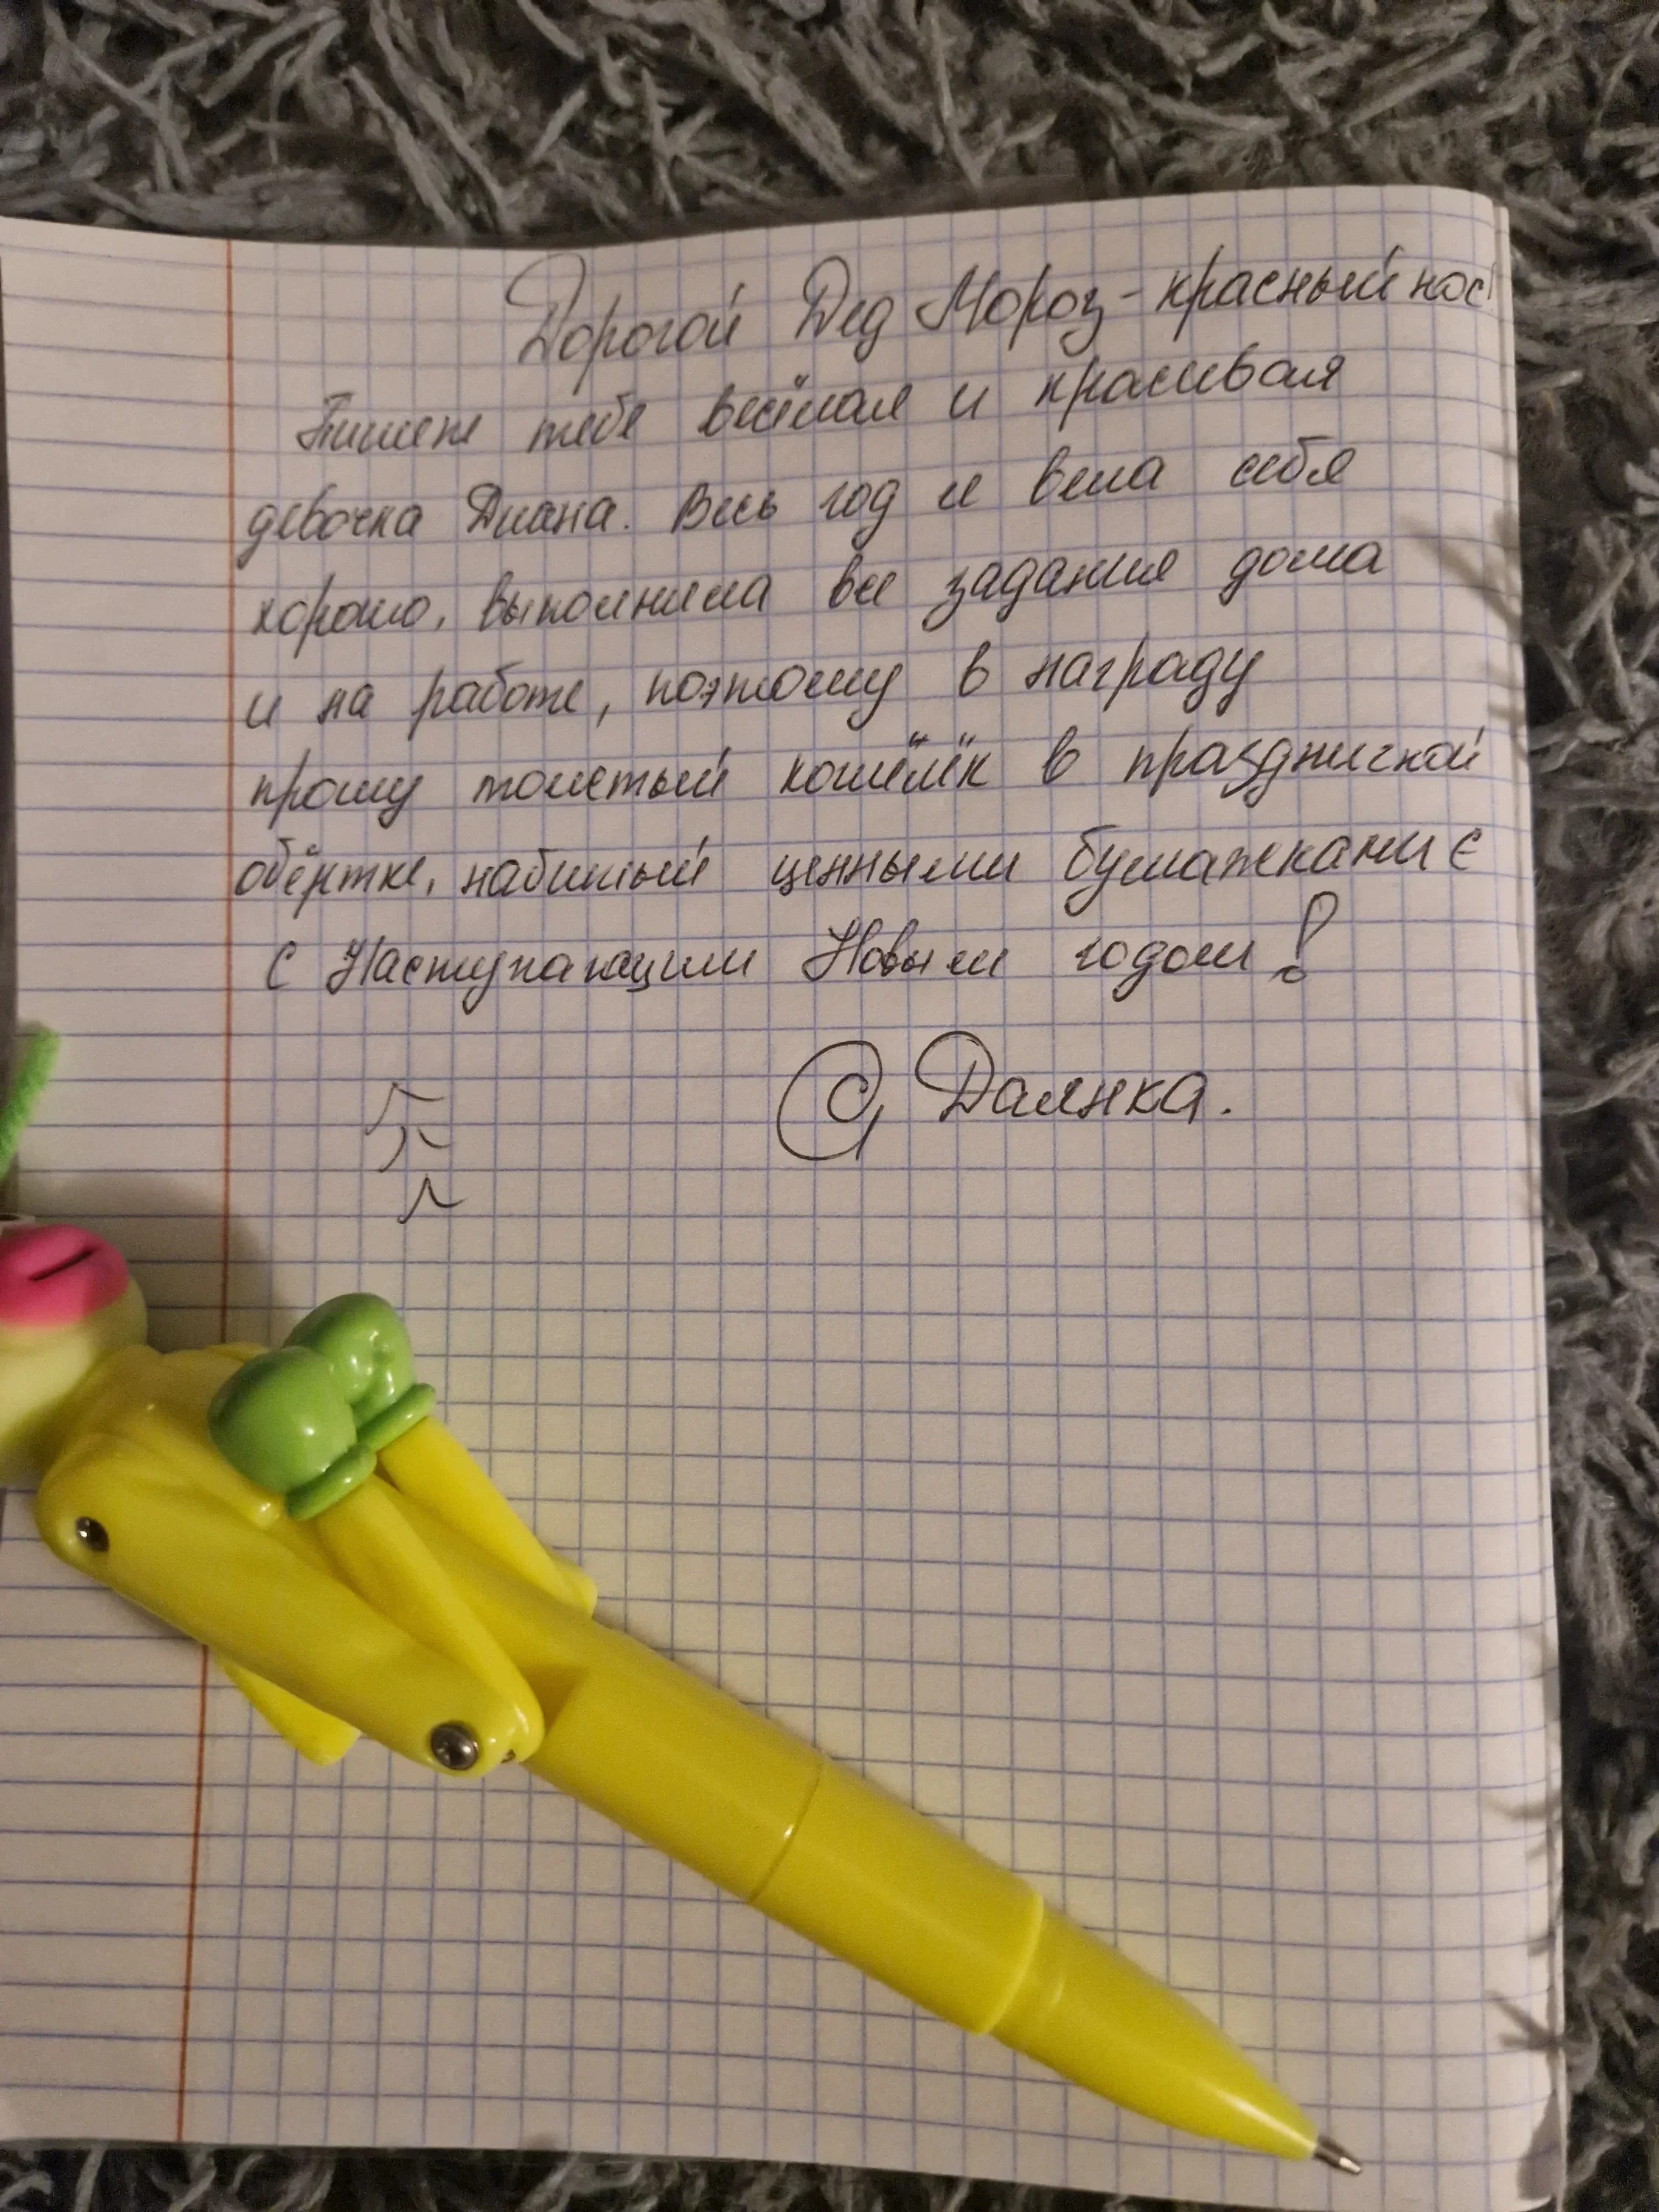 Дорогой Дед Мороз - красный нос!
Пишет тебе весёлая и красивая
девочка Диана. Весь год я вела себя
хорошо, выполнила все задания дома
и на работе, поэтому в награду
прошу толстый кошёлёк в праздничной
обёртке, набитый ценными бумажками €
С Наступающим Новым годом!
Даянка.